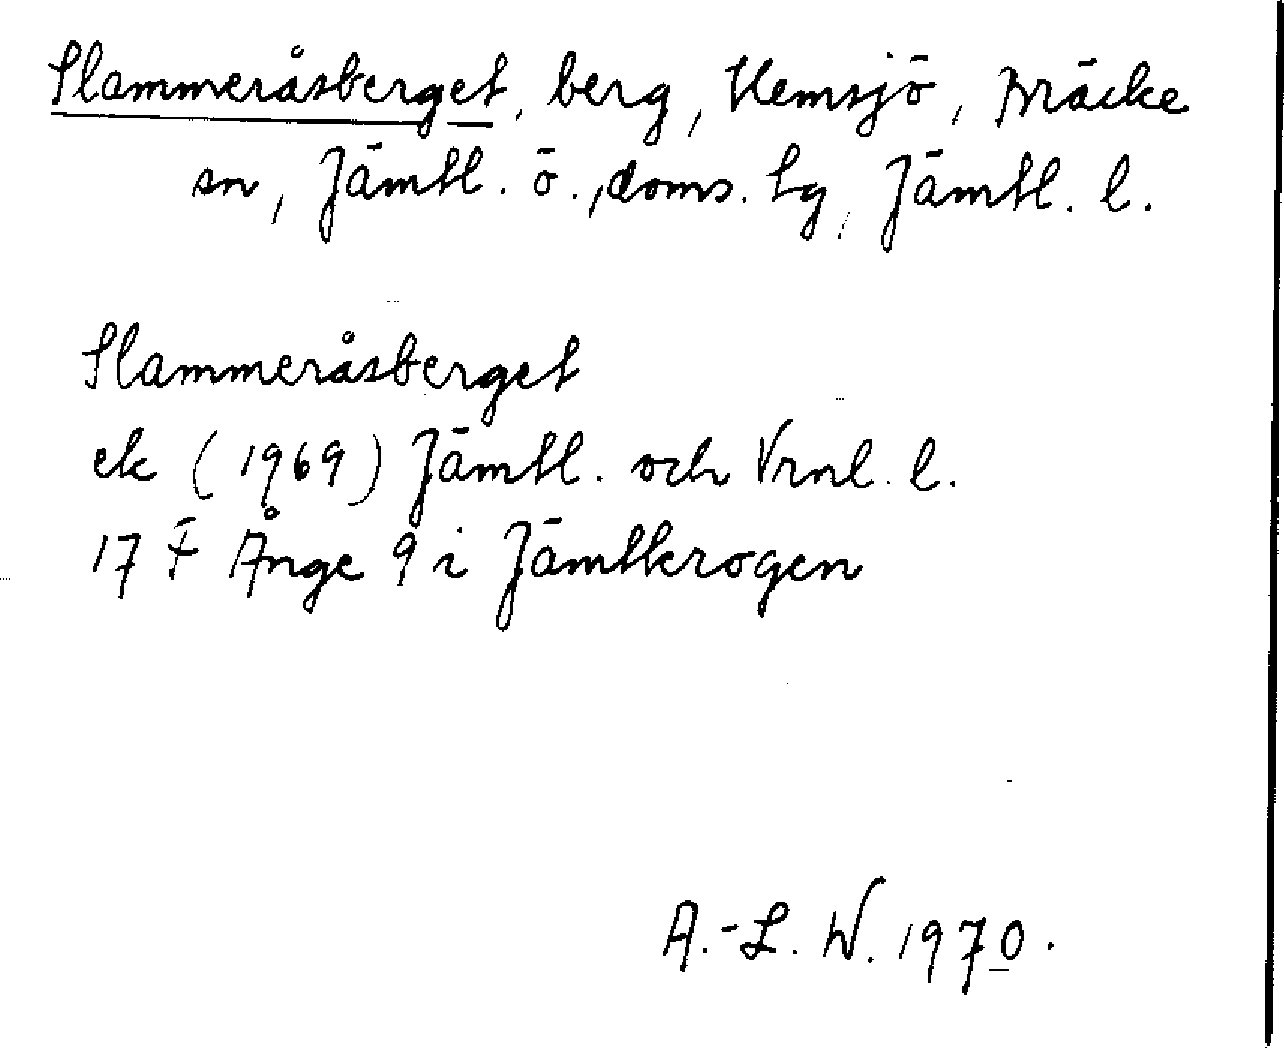 Slammeråsberget, berg, Hemsjö, Bräcke
sn, Jämtl. ö., doms. tg, Jämtl. l.
Slammeråsberget
ek (1969) Jämtl. och Vrnl. l.
17 F Ånge 9 i Jämtkrogen
A.-L. W. 1970.